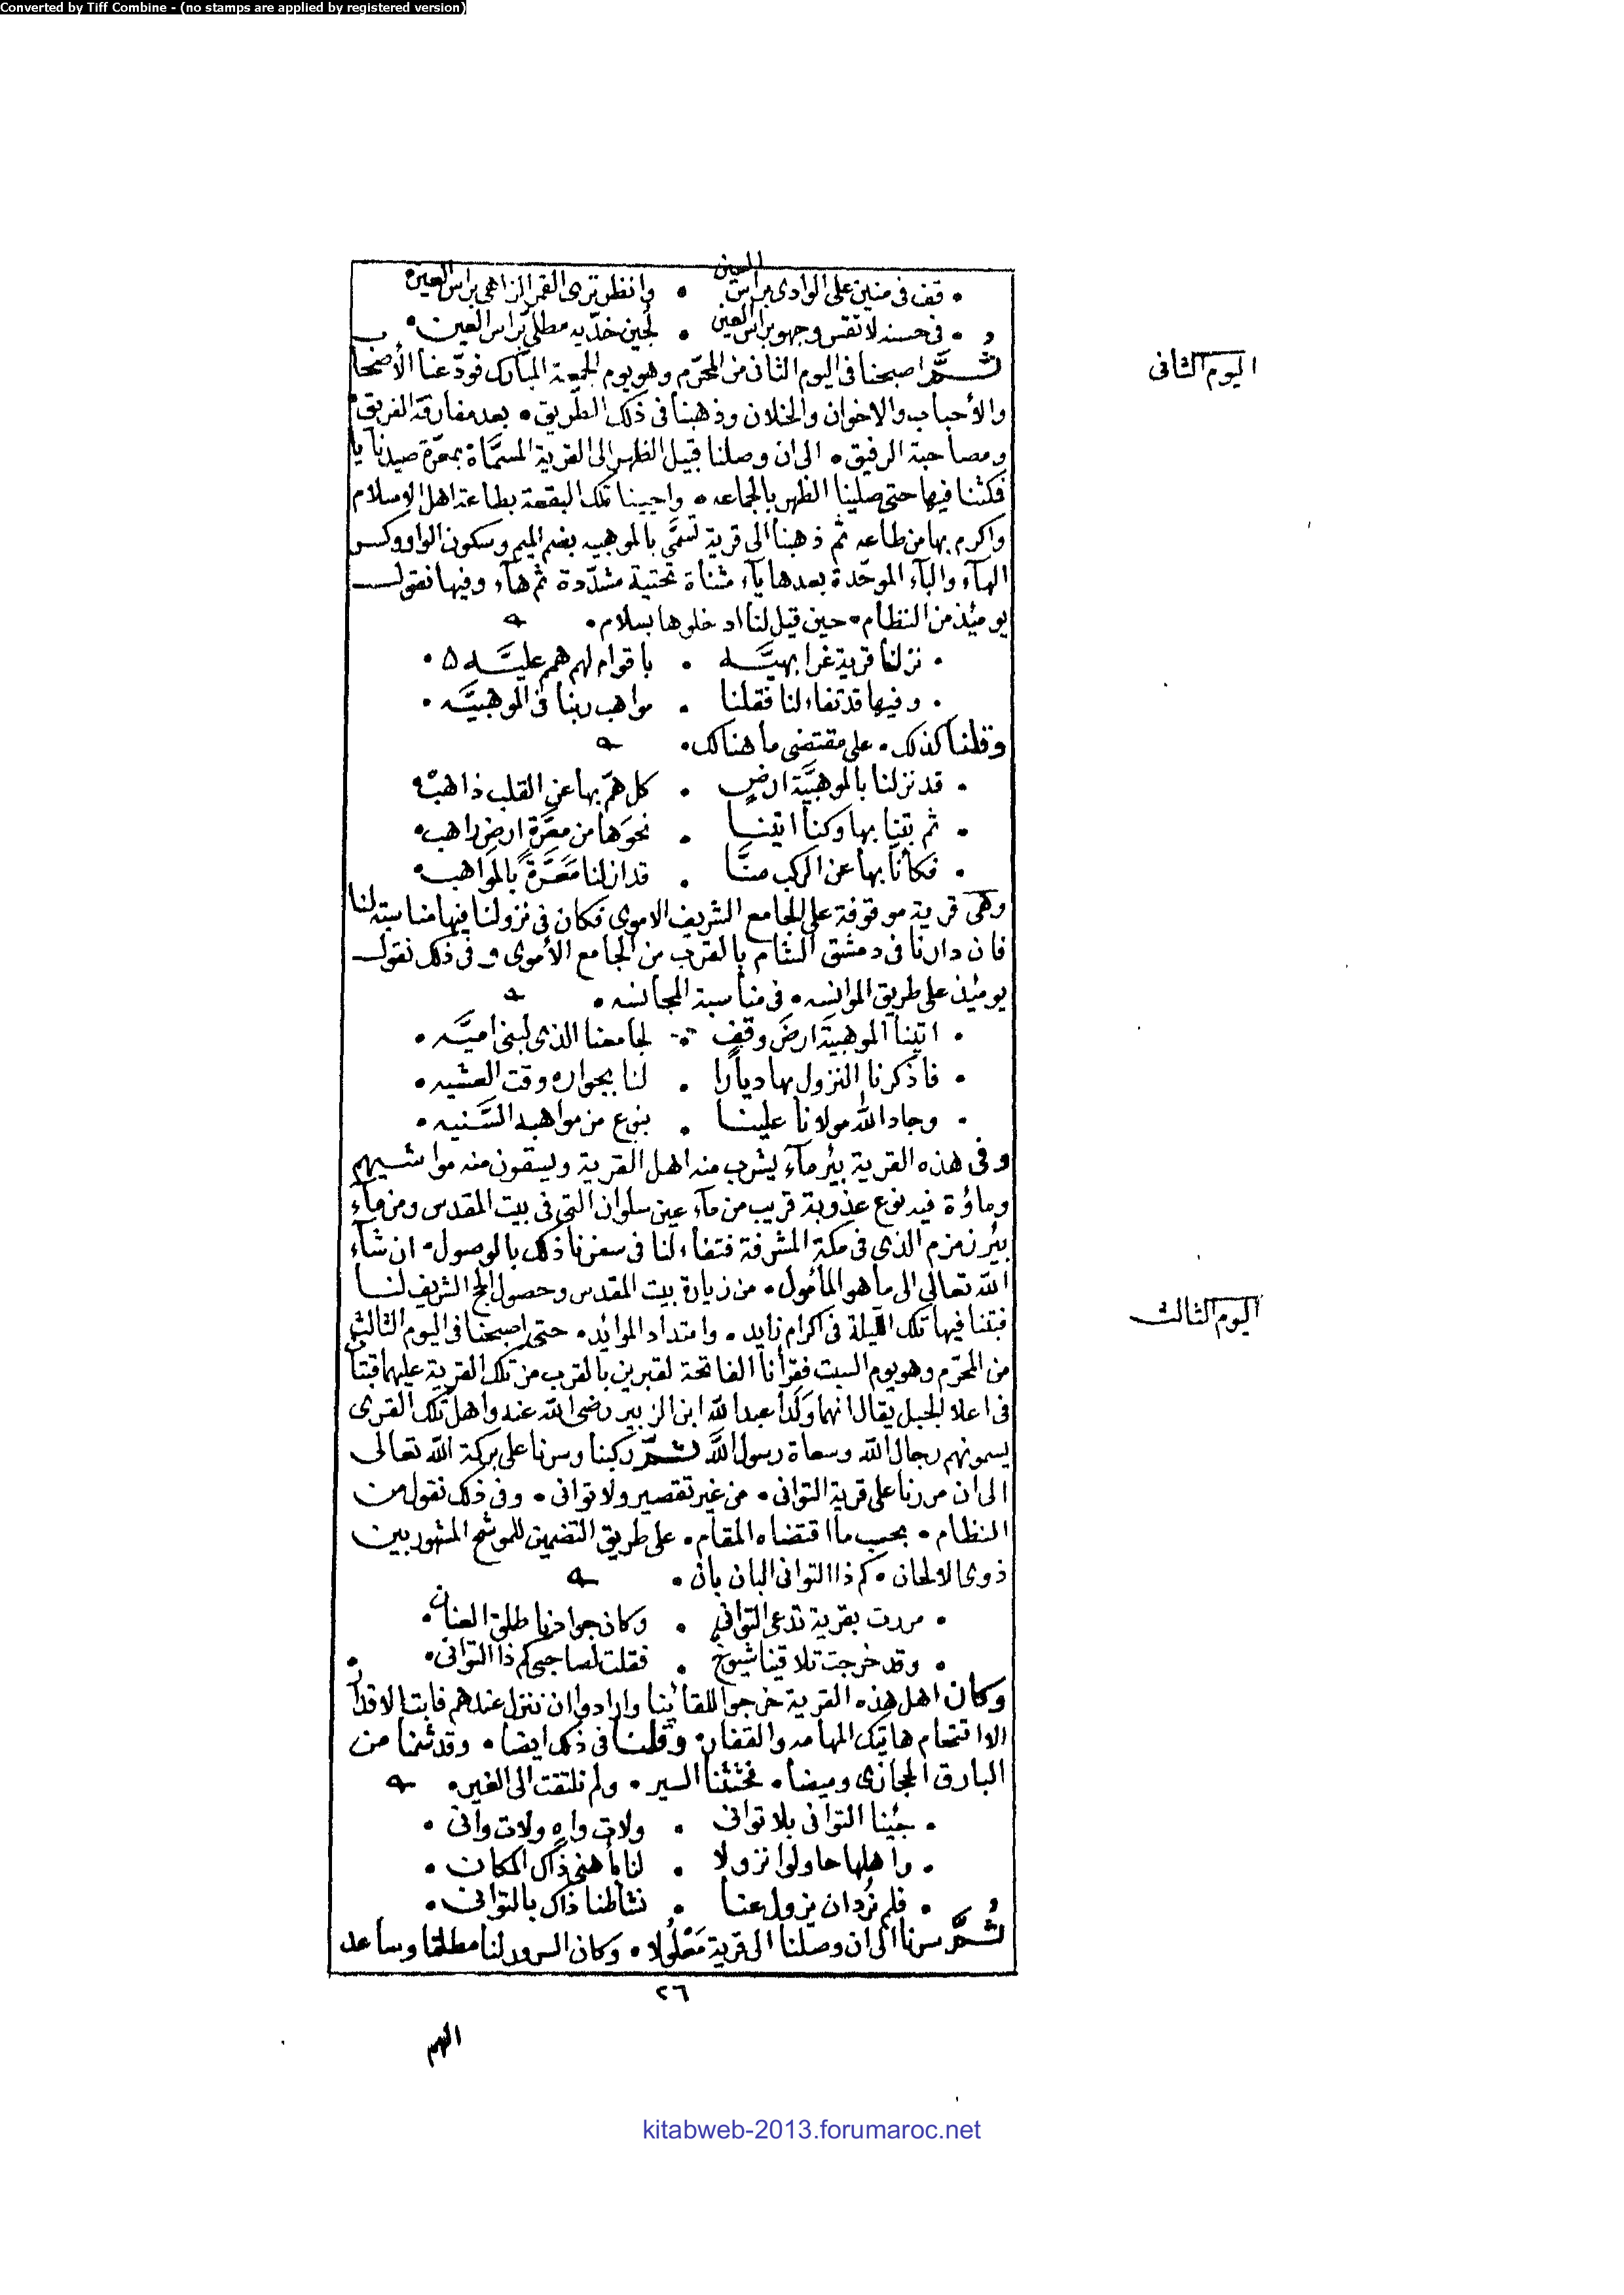 Converted by Tiff Combine - (no stamps are applied by registered version)
• قف فى منين على الوادى براس العين • وانظر ترى القمر الزاهى براس العين •
• فى حسنه لا تقس وجهو براس العين • لجين خدّيه مطلى براس العين •
ثُمَّ اصبحنا فى اليوم الثانى من المحرّم وهو يوم الجمعة المبارك فودّعنا الأصحاب
اليوم الثانى
والأحباب والاخوان والخلان وذهبنا فى ذلك الطريق • بعد مفارقة الفريق •
ومصاحبة الرفيق • الى ان وصلنا قبيل الظهر الى القرية المسمَّاة بمعرّة صيدنايا
فمكثنا فيها حتى صلينا الظهر بالجماعه • واحيينا تلك البقعة بطاعة اهل الاسلام
واكرم بها من طاعه ثم ذهبنا الى قرية تسمَّى بالموهبيه بضم الميم وسكون الواو وكسر
الهآء والبآء الموحّدة بعدها يآء مثناة تحتية مشدّدة ثم هآء وفيها نقول
يومئذ من النظام • حين قيل لنا ادخلوها بسلام •
• نزلنا قرية غرا بهيَّه • باقوام لهم همم عليَّه •
• وفيها قد تفاءلنا فقلنا • مواهب ربنا فى الموهبيَّه •
وقلنا كذلك • على مقتضى ما هنالك •
• قد نزلنا بالموهبيَّة ارضٍ • كل همّ بها عن القلب ذاهب •
• ثم بتنا بها وكنا اتينا • نحوها من معرَّة ارض راهب •
• فكأنا بها عن الركب منَّا • قد ازلنا مَعَرَّةً بالمواهب •
وهى قرية موقوفة على الجامع الشريف الاموى فكان فى نزولنا فيها مناسبة لنا
فان دارنا فى دمشق الشام بالقرب من الجامع الأموى وفى ذلك نقول
يومئذ على طريق الموانسه • فى مناسبة المجانسه •
• اتينا الموهبية ارض وقف • لجامعنا الذى لبنى اميَّه •
• فاذكرنا النزول بها ديارًا • لنا بجواره وقت العشيه •
• وجاد الله مولانا علينا • بنوع من مواهبه السَّنيه •
وفى هذه القرية بئر مآء يشرب منه اهل القرية ويسقون منه مواشيهم
وماؤه فيه نوع عذوبة قريب من مآء عين سلوان التى فى بيت المقدس ومن مآء
بئر زمزم الذى فى مكة المشرفة فتفاءلنا فى سفرنا ذلك بالوصول • ان شآء
الله تعالى الى ما هو المأمول • من زيارة بيت المقدس وحصول الحج الشريف لنا
فبتنا فيها تلك الليلة فى اكرام زايد • وامتداد الموايد • حتى اصبحنا فى اليوم الثالث
اليوم الثالث
من المحرّم وهو يوم السبت فقرأنا الفاتحة لقبرين بالقرب من تلك القرية عليهما قبتان
فى اعلا الجبل يقال انهما ولدا عبد الله ابن الزبير رضى الله عنه واهل تلك القرى
يسمونهم رجال الله وسعاة رسول الله ثمّ ركبنا وسرنا على بركة الله تعالى
الى ان مررنا على قرية التوانى • من غير تقصير ولا توانى • وفى ذلك نقول من
النظام • بحسب ما اقتضاه المقام • على طريق التضمين للموشح المشهور بين
ذوى الالحان • كم ذا التوانى البان بان •
• مررت بقرية تدعى التوانى • وكان جوادنا طلق العنان •
• وقد خرجت تلاقينا شيوخ • فقلت لصاحبى كم ذا التوانى •
وكان اهل هذه القرية خرجوا للقائنا وارادوا ان ننزل عندهم فابت الاقدار
الا اقتحام هاتيك المهامه والقفار وقلنا فى ذلك ايضا • وقد شمنا من
البارق الحجازى وميضا • فحثثنا السير • ولم نلتفت الى الغير •
• جئنا التوانى بلا توانى • ولات واهٍ ولات وانى •
• واهلها حاولوا نزولا • لنا بأهنى ذاك المكان •
• فلم نُرد ان يزول عنا • نشاطنا ذاك بالتوانى •
ثُمَّ سرنا الى ان وصلنا الى قرية مَعْلُولا • وكان السرور لنا مطلقا وساعد
٢٦
الهم
kitabweb-2013.forumaroc.net